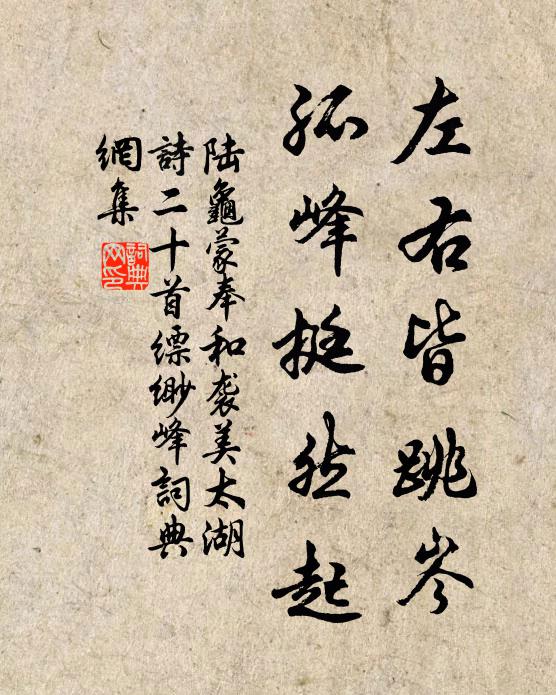 左右皆跳岑
孤峰挺然起
陆龜蒙奉和袭美太湖
詩二十首缥缈峰詞典
網集
詞典網印